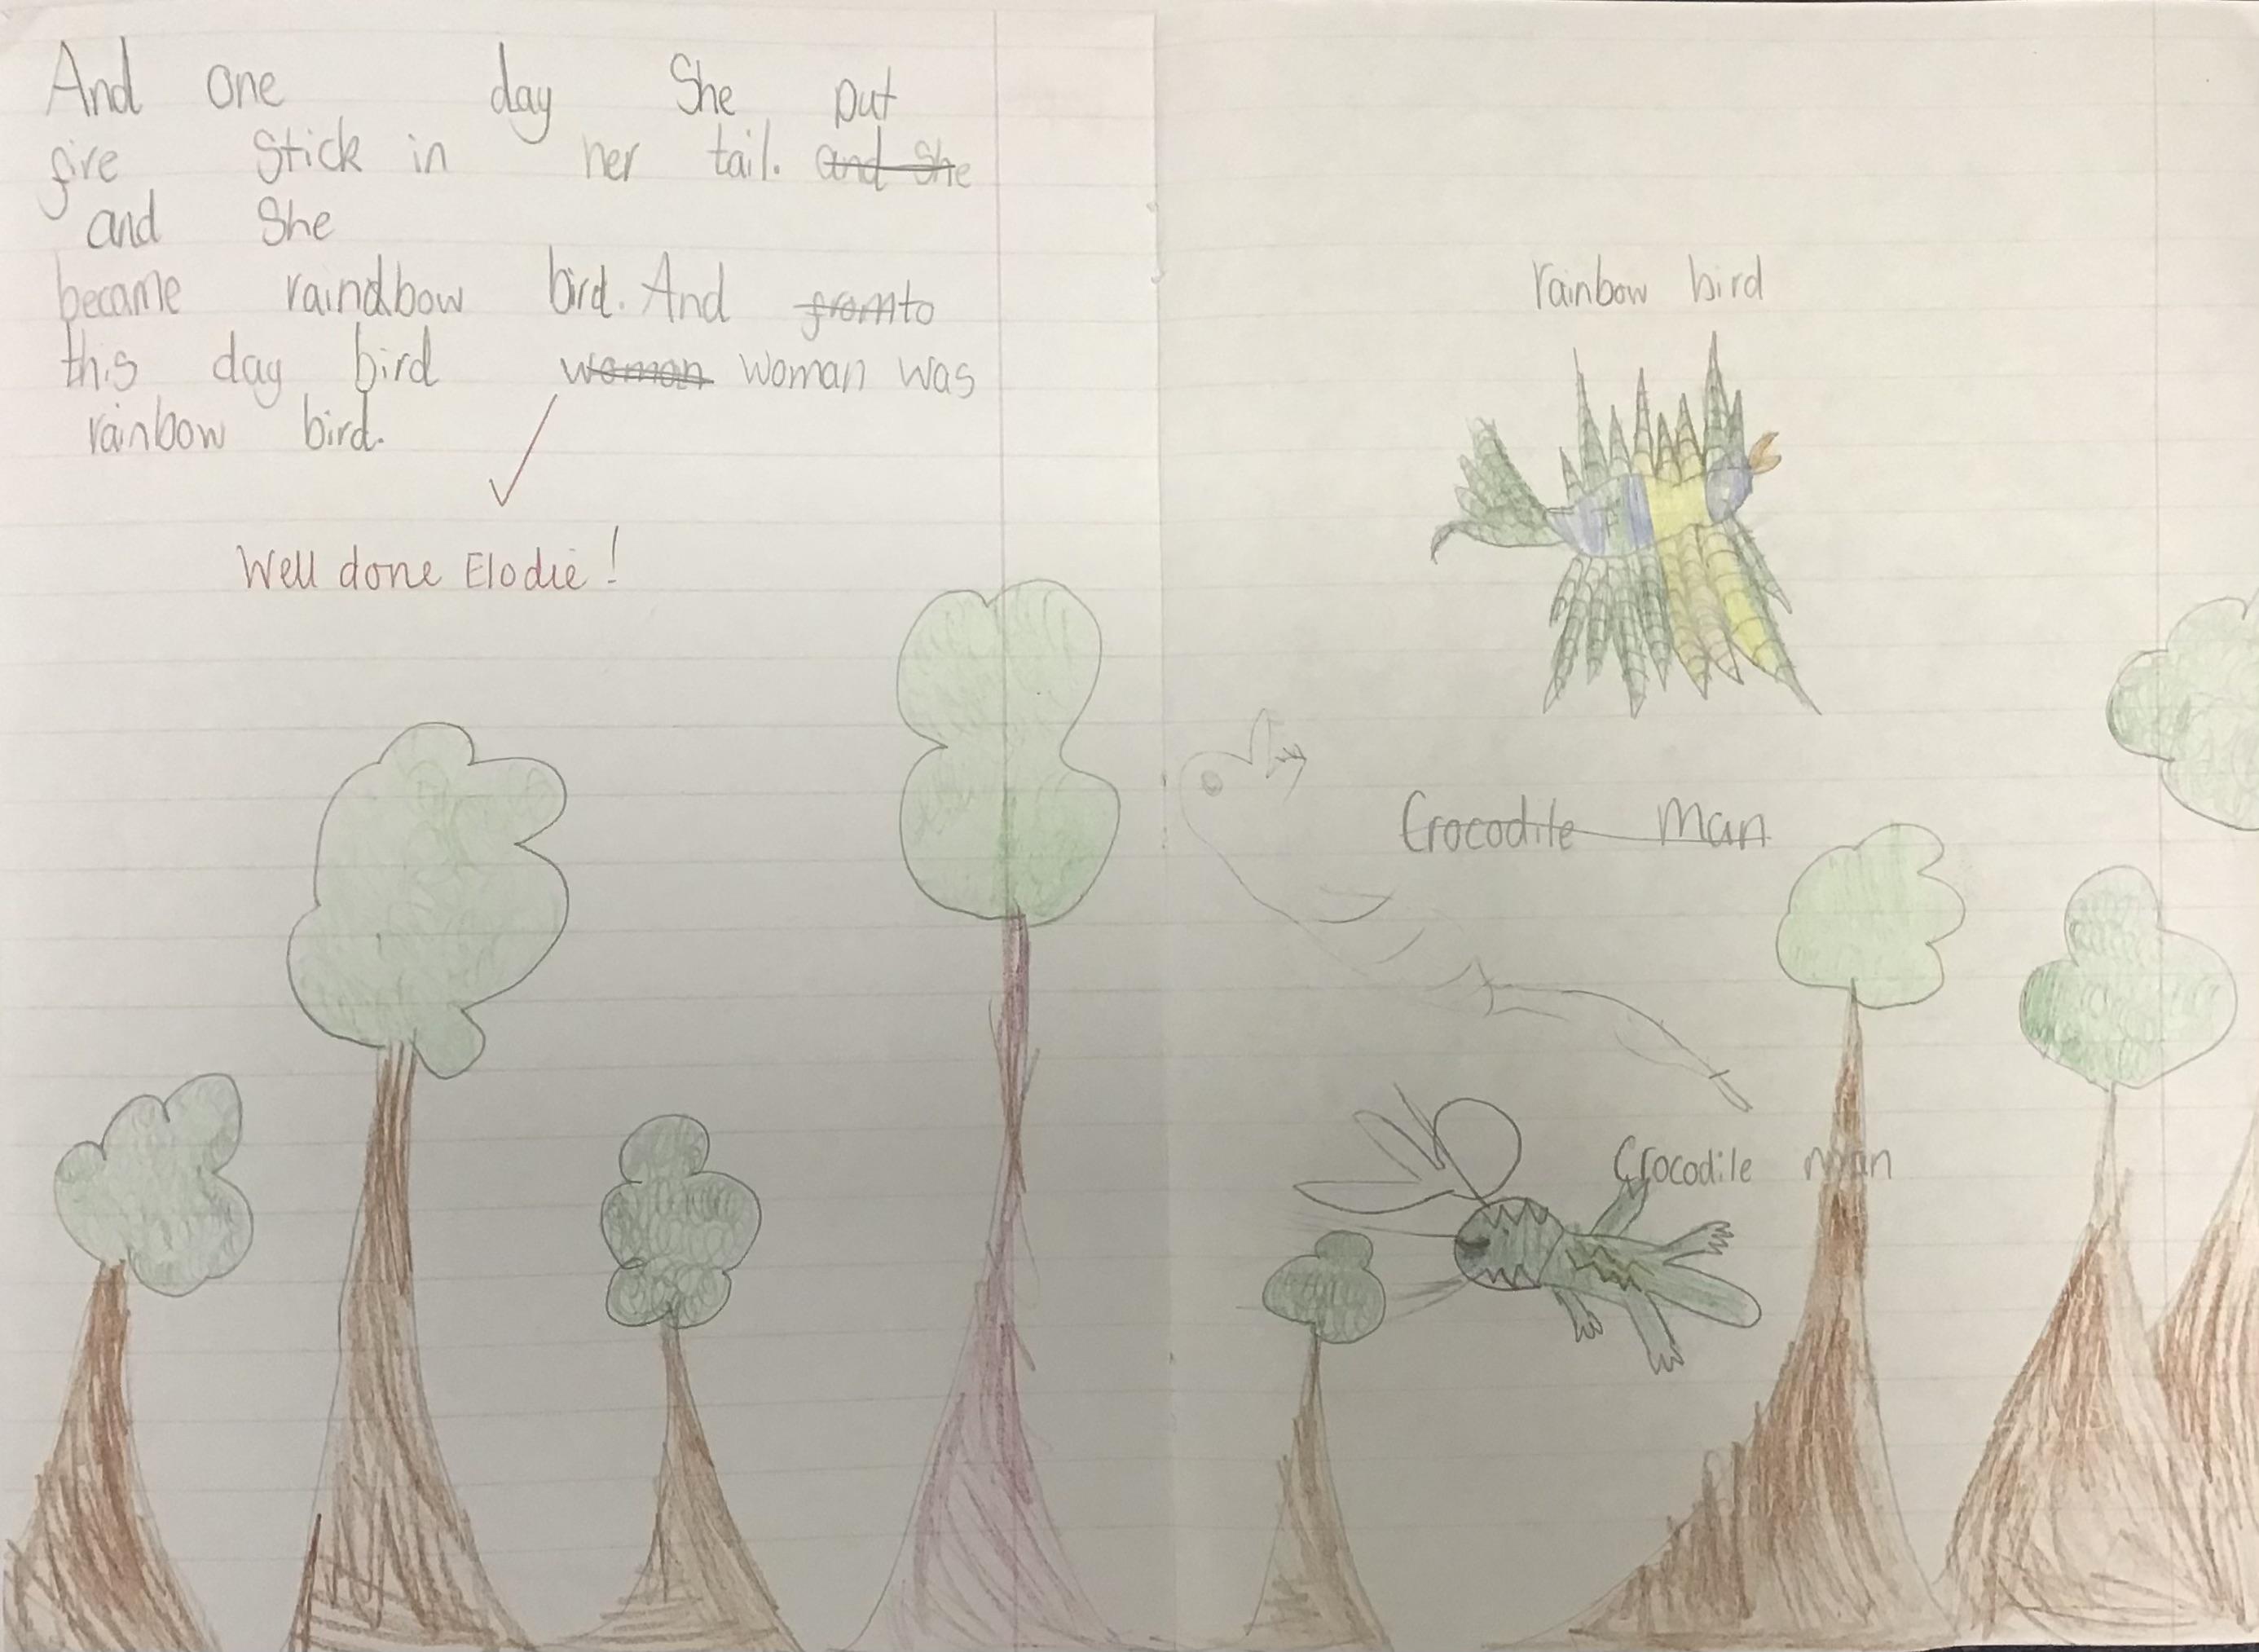 And one day She put
fire Stick in her tail. and She
and She
became raindbow bird. And fromto
this day bird woman woman was
rainbow bird.
Well done Elodie!
rainbow bird
Crocodile Man
Crocodile man